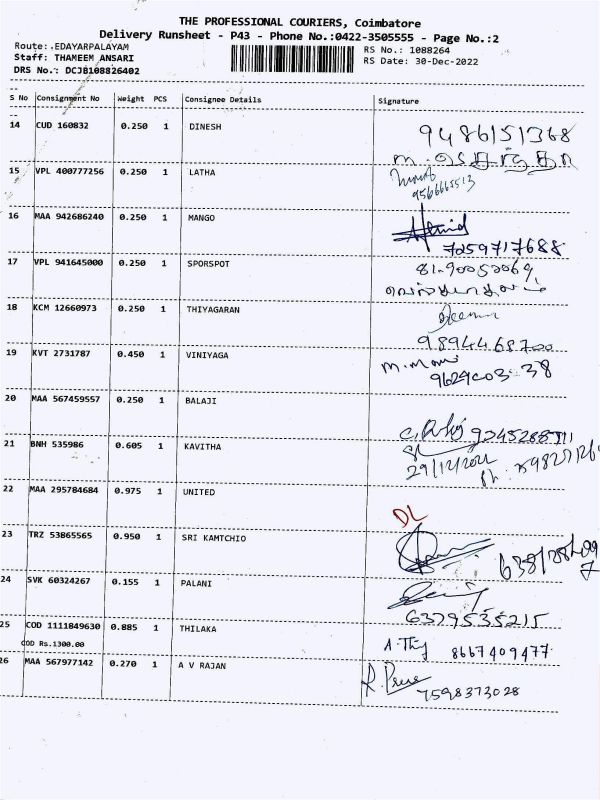 THE PROFESSIONAL COURIERS, Coimbatore
Delivery Runsheet - P43 - Phone No.:0422-3505555 - Page No.:2
Route:.EDAYARPALAYAM
RS No.: 1088264
Staff: THAMEEM ANSARI
RS Date: 30-Dec-2022
DRS No.: DCJB108826402
S No Consignment No Weight PCS Consignee Details Signature
14 CUD 160832 0.250 1 DINESH 9486151368
15 VPL 400777256 0.250 1 LATHA
9566665513
16 MAA 942686240 0.250 1 MANGO
7259717688
17 VPL 941645000 0.250 1 SPORSPOT
18 KCM 12660973 0.250 1 THIYAGARAN
9894468700
19 KVT 2731787 0.450 1 VINIYAGA
20 MAA 567459557 0.250 1 BALAJI
21 BNH 535986 0.605 1 KAVITHA
22 MAA 295784684 0.975 1 UNITED
DL
23 TRZ 53865565 0.950 1 SRI KAMTCHIO
24 SVK 60324267 0.155 1 PALANI
6379535215
25 COD 1111849630 0.885 1 THILAKA
COD Rs.1300.00
8667409477
26 MAA 567977142 0.270 1 A V RAJAN
7598373028